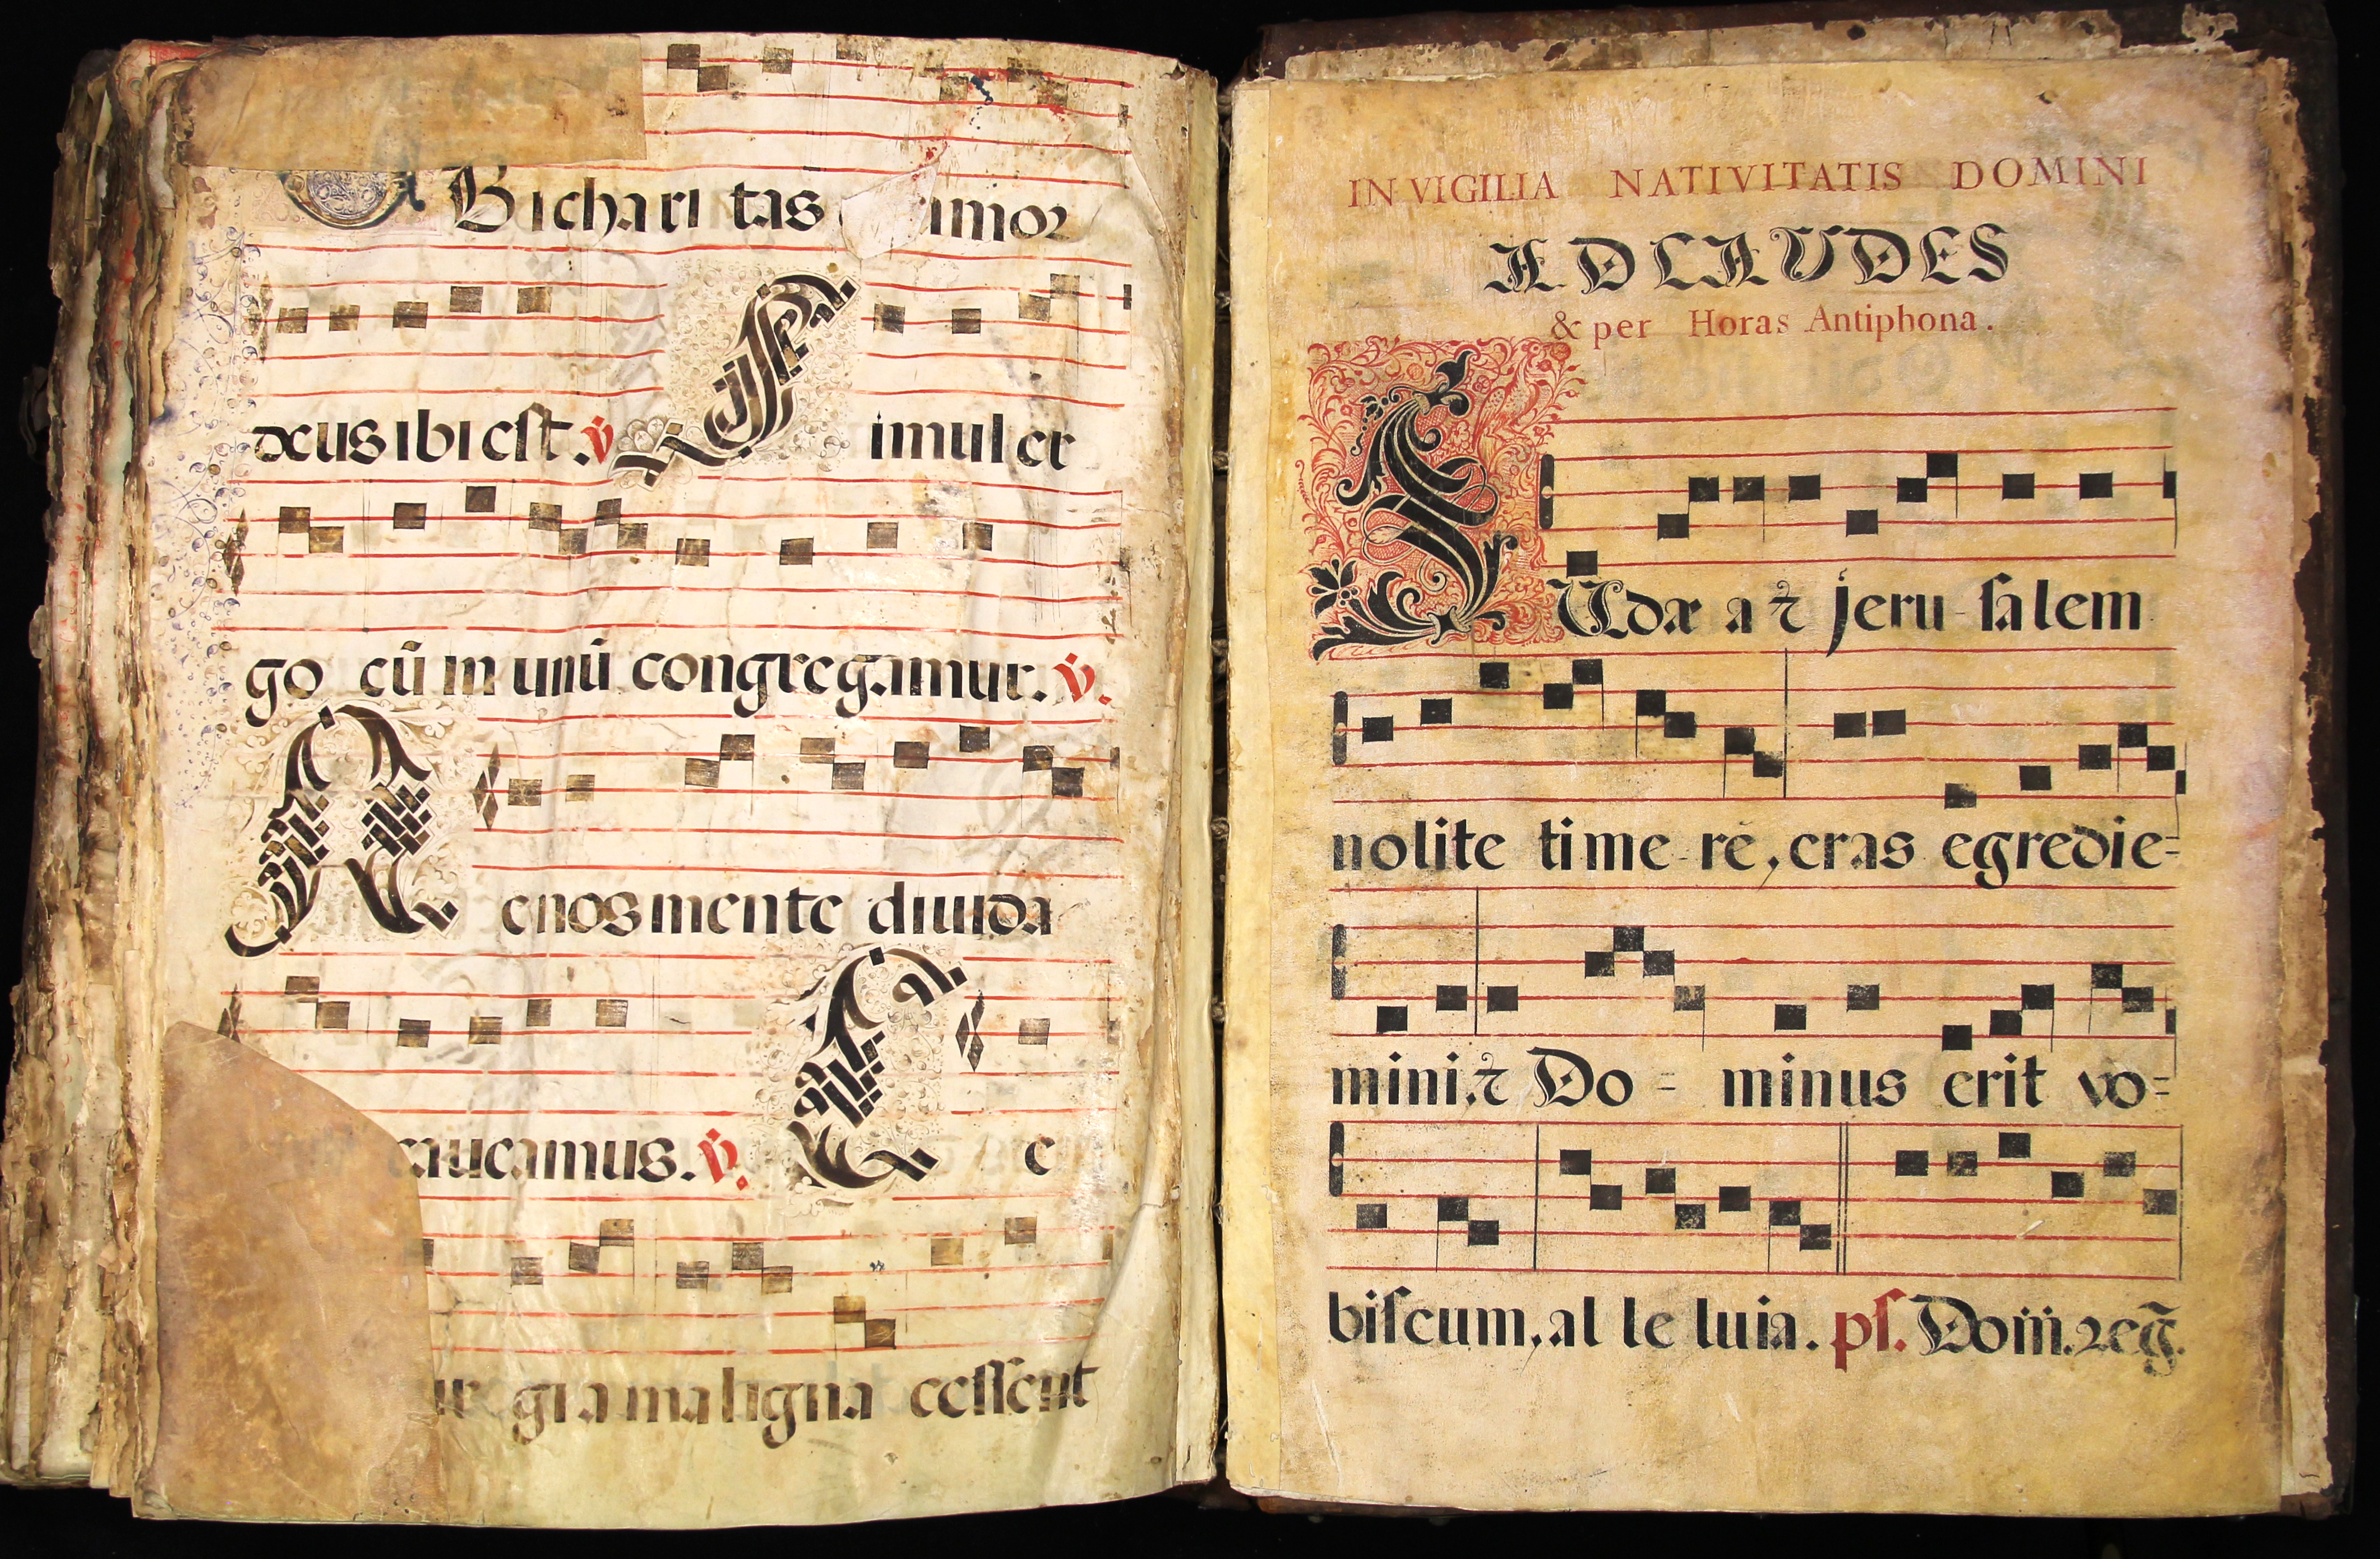 UBi chari tas amor
deus ibi est. ℣ Simul er
go cū in unū congregamur. ℣.
Ne nos mente diuida
caueamus. ℣. C e
ur gia maligna cessent
IN VIGILIA NATIVITATIS DOMINI
AD LAUDES
& per Horas Antiphona.
IUdæa ⁊ jeru-salem
nolite time-re, cras egredie-
mini, ⁊ Do - minus erit vo-
biſcum, al le luia. pſ. Dom̄. reg̃.